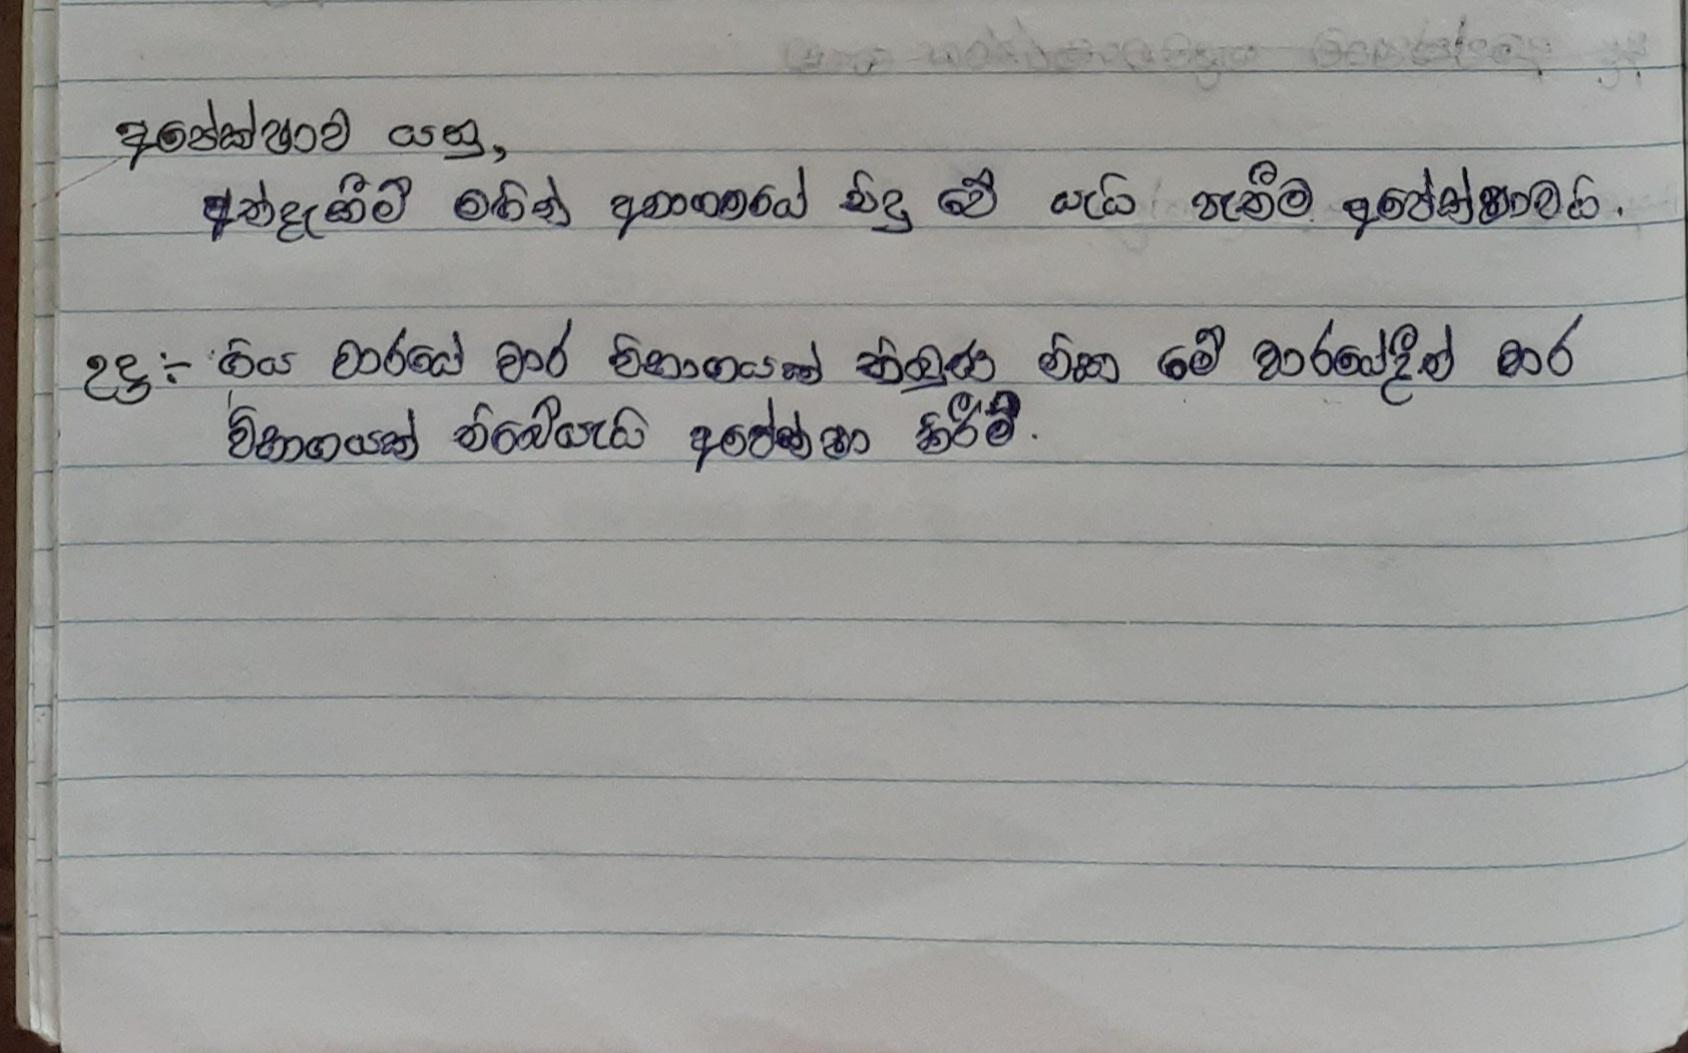 අපේක්ෂාව යනු,
අත්දැකීම් මඟින් අනාගතයේ සිදු වේ යැයි පැතීම අපේක්ෂාවයි.
උදා:- ගිය වාරයේ වාර විභාගයක් තිබුණ නිසා මේ වාරයේදීත් වාර
විභාගයක් තිබේයැයි අපේක්ෂා කිරීම්.